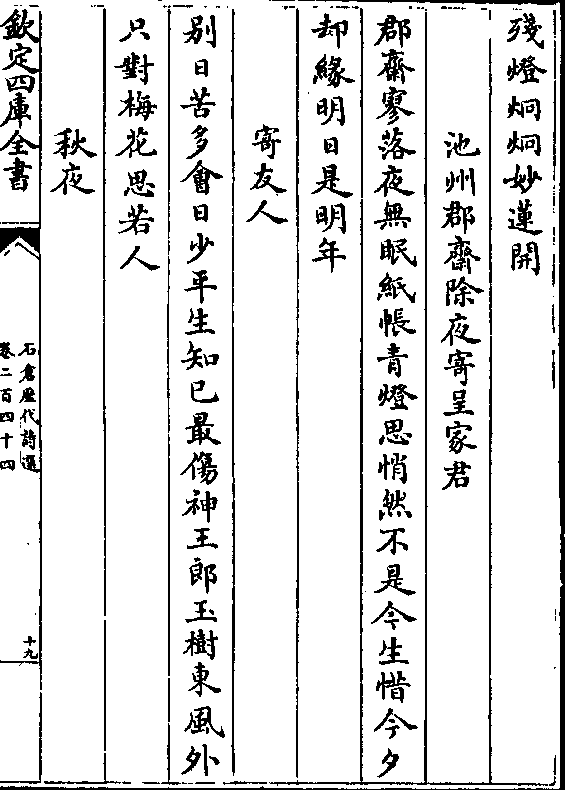 殘燈炯炯妙蓮開
池州郡齋除夜寄呈家君
郡齋寥落夜無眠紙帳青燈思悄然不是今生惜今夕
却緣明日是明年
寄友人
别日苦多會日少平生知已最傷神王郎玉樹東風外
只對梅花思若人
秋夜
欽定四庫全書
石倉歷代詩選
卷二百四十四
十九